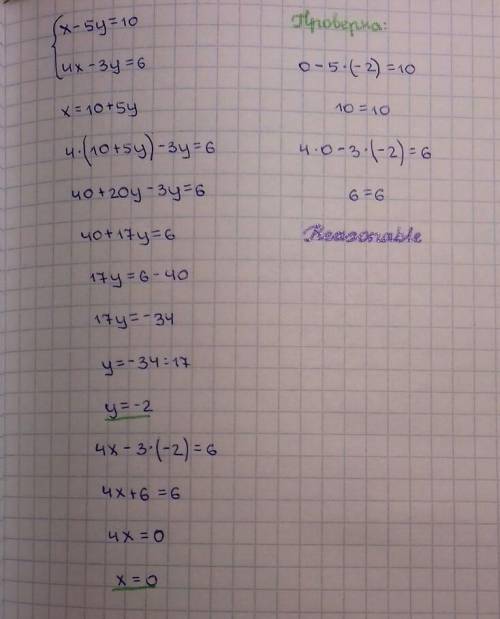 x-5y=10
4x-3y=6
x=10+5y
4·(10+5y)-3y=6
40+20y-3y=6
40+17y=6
17y=6-40
17y=-34
y=-34:17
y=-2
4x-3·(-2)=6
4x+6=6
4x=0
x=0
Проверка:
0-5·(-2)=10
10=10
4·0-3·(-2)=6
6=6
Reasonable